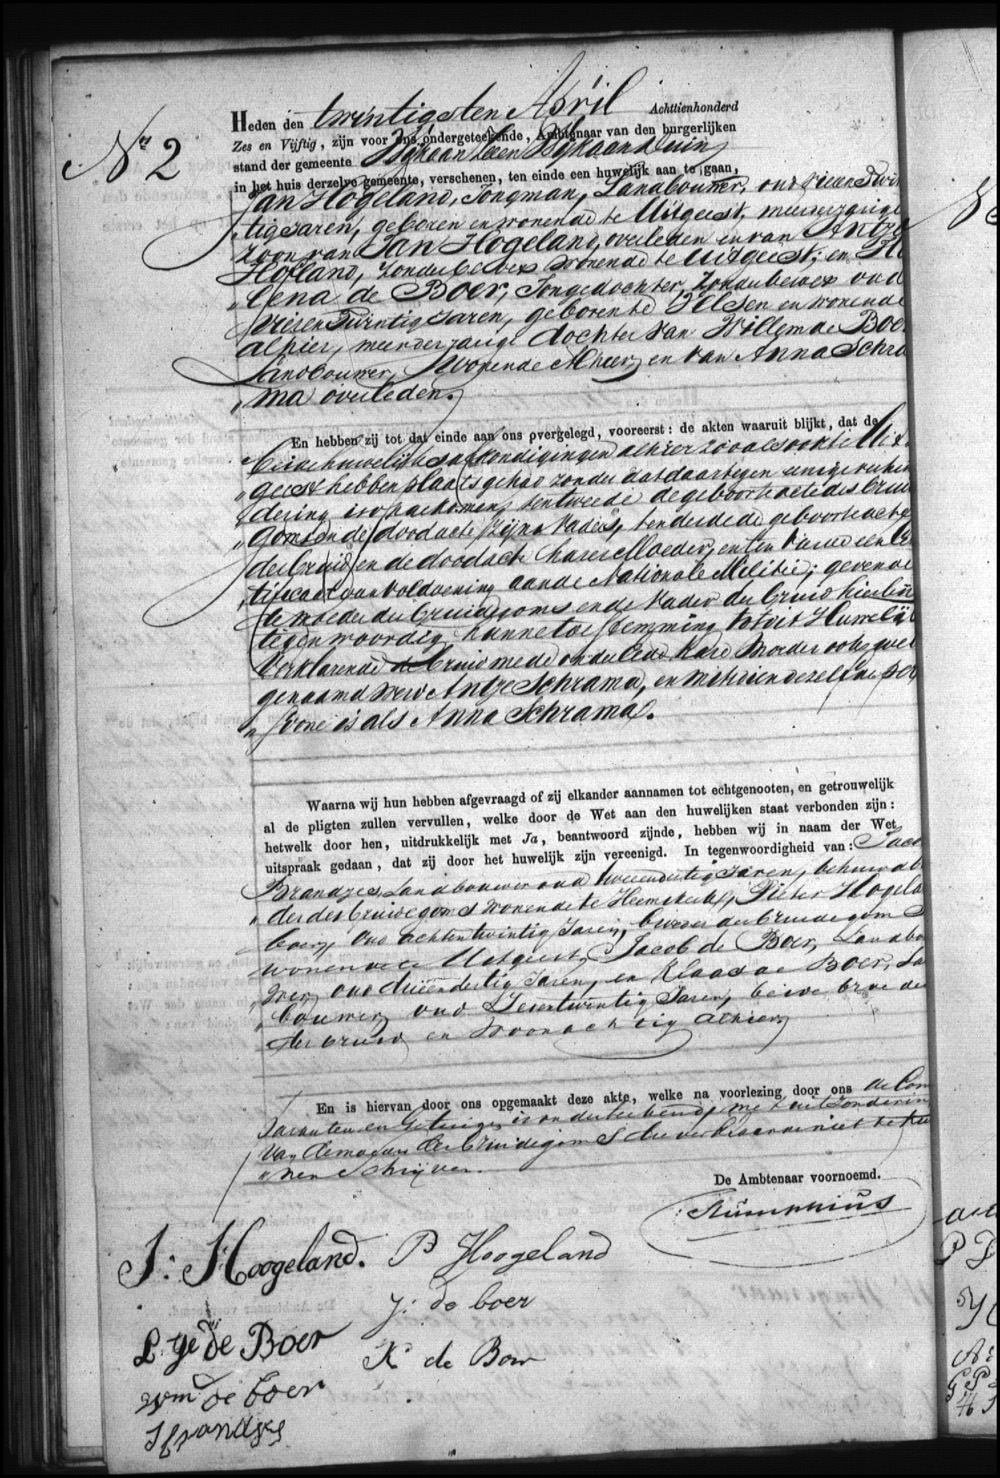 No 2
Heden den twintigsten April Achttienhonderd
Zes en Vijftig, zijn voor Ons ondergeteekende, Ambtenaar van den burgerlijken
stand der gemeente Wijkaan Zeeen Wijkaanduin
in het huis derzelve gemeente, verschenen, ten einde een huwelijk aan te gaan,
Jan Hogeland, Jongman, Landbouwer, oud
tig jaren, geboren en wonende te Uitgeest, meerderjarige
zoon van Jan Hogeland, overleden en van Antje
Holland, zonder beroep wonende te Uitgeest; en
lena de Boer, Jongedochter, zonder beroep oud
en Twintig jaren, geboren te Velsen en wonende
alhier, meerderjarige dochter van Willem de Boer
Landbouwer, wonende Alhier, en van Anna Schra
ma overleden.
En hebben zij tot dat einde aan ons overgelegd, vooreerst: de akten waaruit blijkt, dat de
beide huwelijksafkondigingen alhier zooals ook te Uit
geest hebben plaats gehad zonder dat daartegen eenige verhin
dering is opgekomen, ten tweede de geboorteacte des Brui
goms en de doodacte zijns Vaders, ten derde de geboorteacte
der Bruid en de doodacte harer Moeder, en ten vierde een Cer
tificaat van voldoening aan de Nationale Militie; gevende
de moeder des Bruidegoms en de Vader der Bruid hierbij
tegenwoordig hunne toestemming tot dit Huwelijk
Verklarende de Bruid mede onder Eede, hare Moeder ook
genaamd Antje Schrama, en mitsdien dezelfde per
soone is als Anna Schrama.
Waarna wij hun hebben afgevraagd of zij elkander aannamen tot echtgenooten, en getrouwelijk
al de pligten zullen vervullen, welke door de Wet aan den huwelijken staat verbonden zijn:
hetwelk door hen, uitdrukkelijk met Ja, beantwoord zijnde, hebben wij in naam der Wet
uitspraak gedaan, dat zij door het huwelijk zijn vereenigd. In tegenwoordigheid van: Jacob
Brandjes, Landbouwer oud tweeendertig jaren, behuwdbroe
der des bruidegoms wonende te Heemskerk, Pieter Hogeland
boer, oud achtentwintig Jaren, broeder des bruidegoms
wonende te Uitgeest, Jacob de Boer, Landbou
wer, oud drieëndertig Jaren, en Klaas de Boer, La
bouwer, oud Zevenentwintig Jaren, beide broeders
der bruid en woonachtig alhier
En is hiervan door ons opgemaakt deze akte, welke na voorlezing door ons de Com
paranten en Getuigen is onderteekend, met uitzondering
van de moeder des bruidegoms die verklaarde niet te kun
nen Schrijven.
De Ambtenaar voornoemd.
Rumphius
J: Hoogeland. P Hoogeland
J: de boer
de Boer
K de Boer
wm de boer
J brandjes